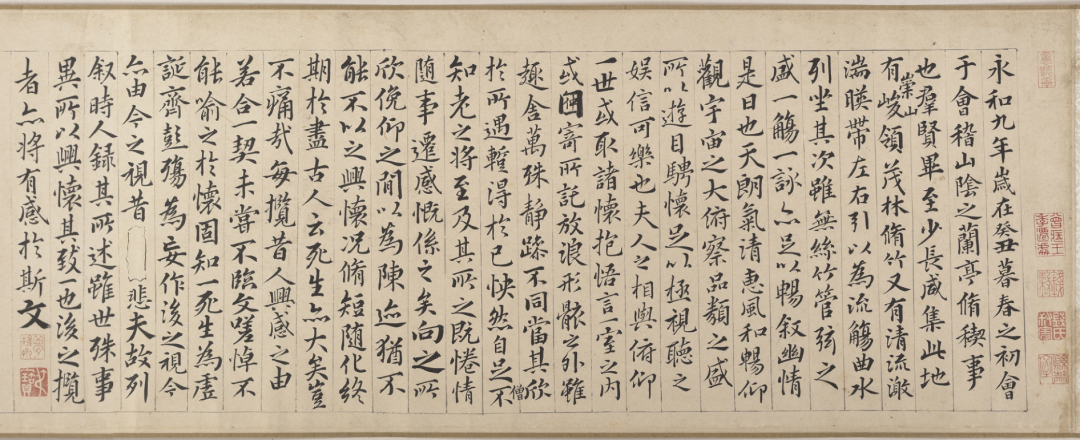 永和九年歲在癸丑暮春之初會
于會稽山陰之蘭亭脩稧事
也羣賢畢至少長咸集此地
有崇山峻領茂林脩竹又有清流激
湍暎帶左右引以為流觴曲水
列坐其次雖無絲竹管弦之
盛一觴一詠亦足以暢叙幽情
是日也天朗氣清惠風和暢仰
觀宇宙之大俯察品類之盛
所以遊目騁懷足以極視聽之
娛信可樂也夫人之相與俯仰
一世或取諸懷抱悟言一室之內
或因寄所託放浪形骸之外雖
趣舍萬殊靜躁不同當其欣
僧
於所遇蹔得於己快然自足不
知老之將至及其所之既惓情
随事遷感慨係之矣向之所
欣俛仰之間以為陳迹猶不
能不以之興懷况脩短随化終
期於盡古人云死生亦大矣豈
不痛哉每攬昔人興感之由
若合一契未甞不臨文嗟悼不
能喻之於懷固知一死生為虛
誕齊彭殤為妄作後之視今
亦由今之視昔 悲夫故列
叙時人錄其所述雖世殊事
異所以興懷其致一也後之攬
者亦將有感於斯文